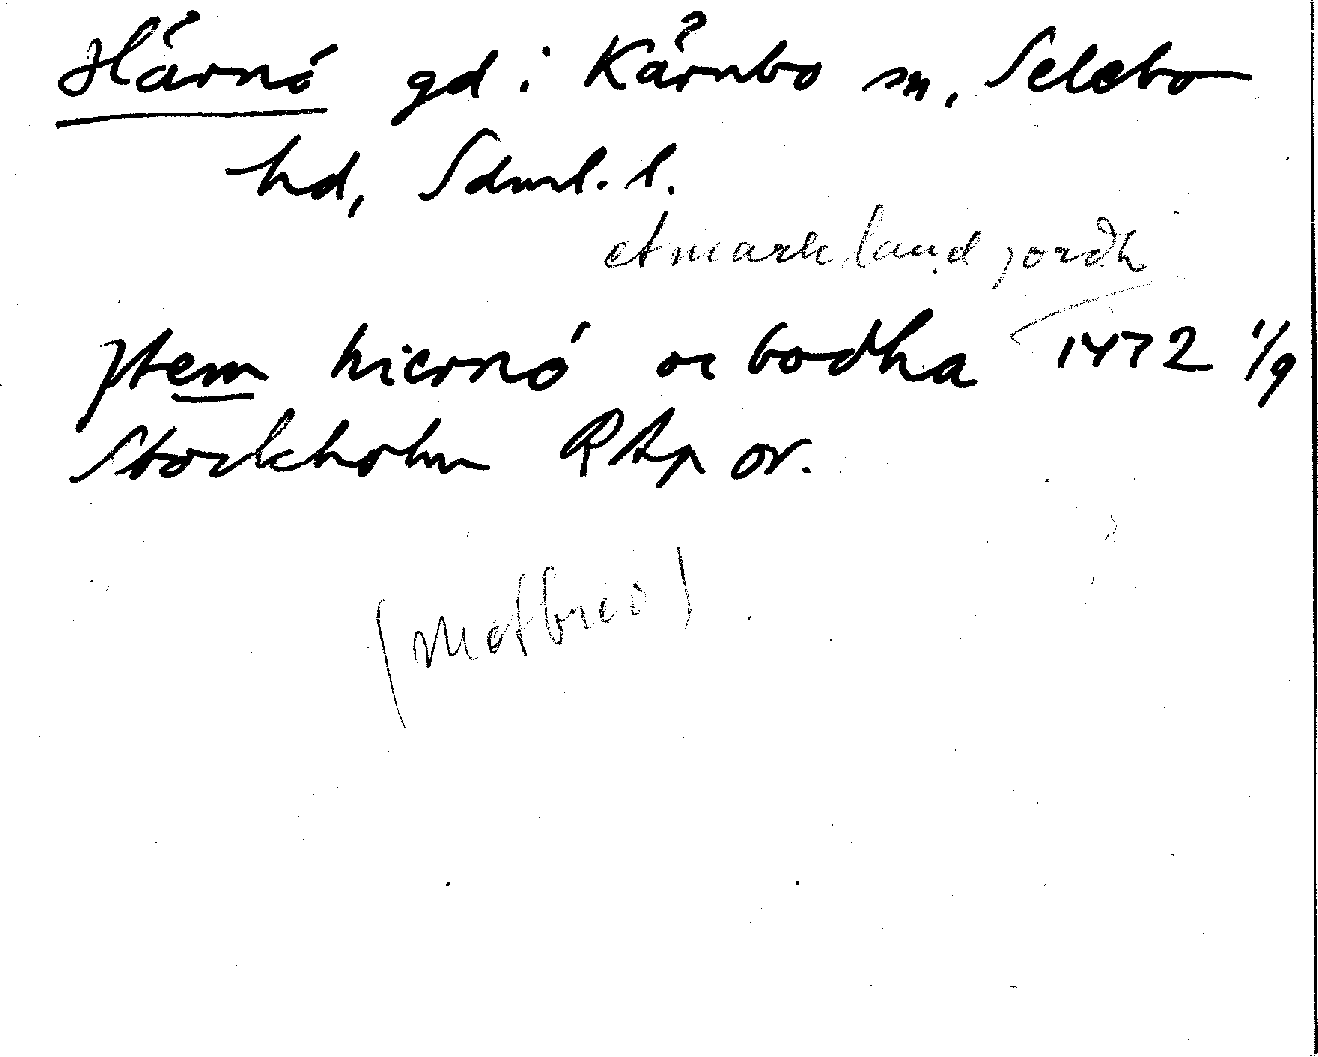 Härnö gd i Kärnbo sn, Selebo
hd, Sdml. l.
et mark land jordh
Jtem hiernö oc bodha 1472 1/9
Stockholm RAp or.
(Motbrev)